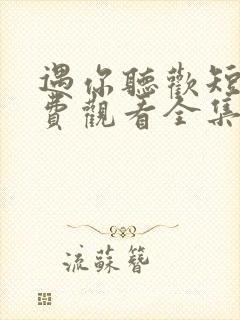 遇你聽歡短
費觀看全集
流蘇簪